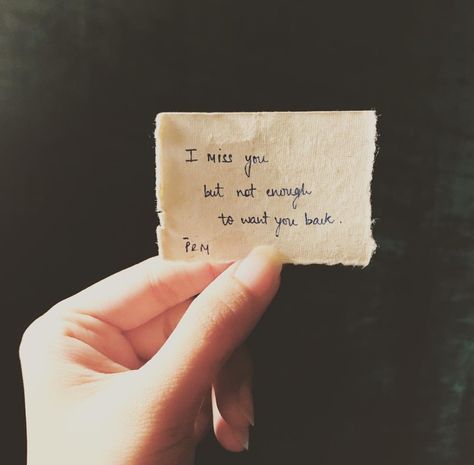 I miss you
but not enough
to want you back.
PRM